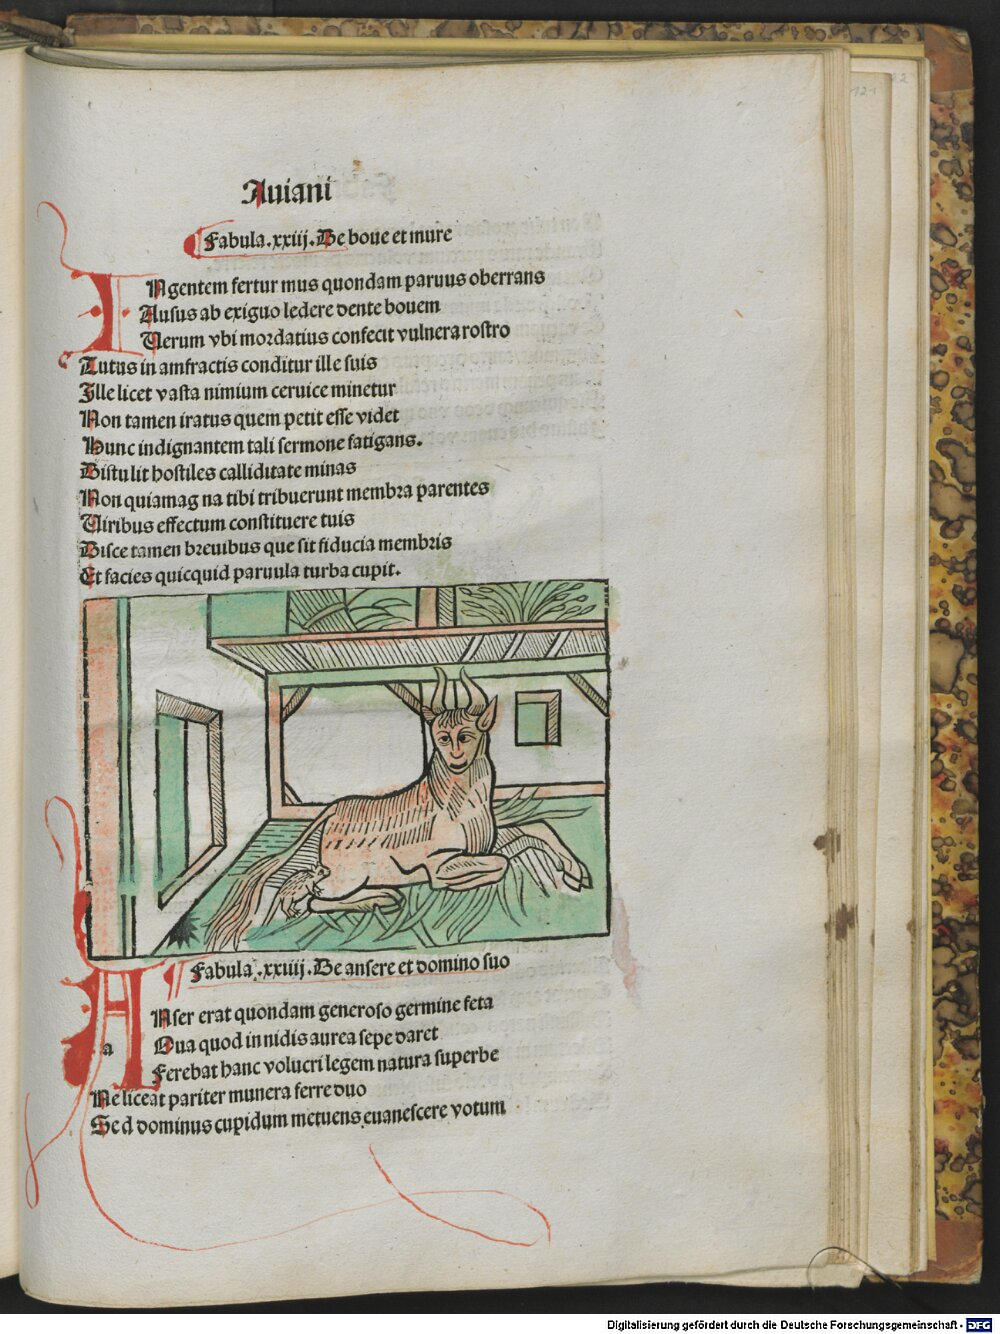 Auiani
Fabula .xxiij. De boue et mure
INgentem fertur mus quondam paruus oberrans
Ausus ab exiguo ledere dente bouem
Uerum vbi mordatius confecit vulnera rostro
Tutus in amfractis conditur ille suis
Ille licet vasta nimium ceruice minetur
Non tamen iratus quem petit esse videt
Hunc indignantem tali sermone fatigans.
Distulit hostiles calliditate minas
Non quia mag na tibi tribuerunt membra parentes
Uiribus effectum constituere tuis
Disce tamen breuibus que sit fiducia membris
Et facies quicquid paruula turba cupit.
Fabula .xxiiij. De ansere et domino suo
ANser erat quondam generoso germine feta
a Oua quod in nidis aurea sepe daret
Ferebat hanc volucri legem natura superbe
Ne liceat pariter munera ferre duo
Sed dominus cupidum metuens euanescere votum
Digitalisierung gefördert durch die Deutsche Forschungsgemeinschaft - DFG